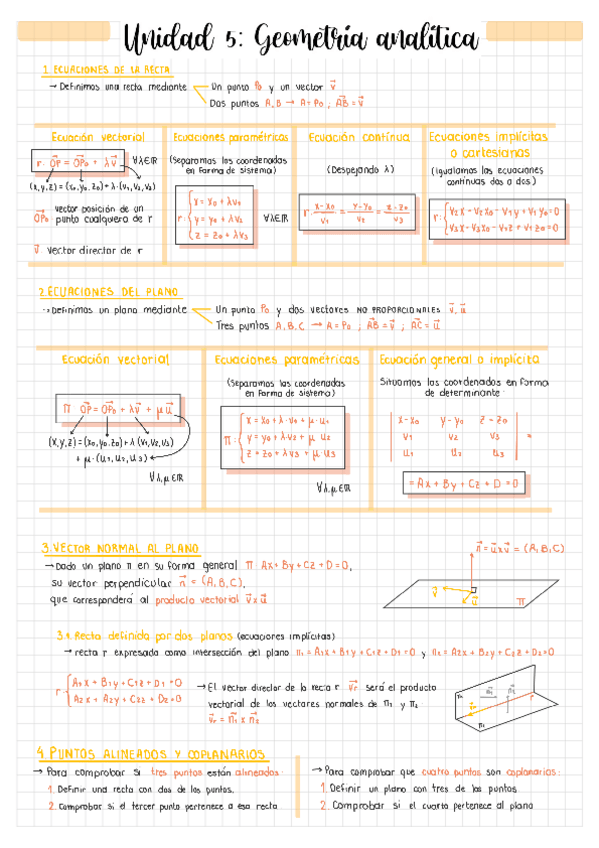 Unidad 5: Geometría analítica
1. ECUACIONES DE LA RECTA
→ Definimos una recta mediante
Un punto P₀ y un vector v⃗
Dos puntos A, B → A = P₀ ; AB⃗ = v⃗
Ecuación vectorial
r: OP⃗ = OP₀⃗ + λv⃗ ∀λ∈ℝ
(x, y, z) = (x₀, y₀, z₀) + λ·(v₁, v₂, v₃)
OP₀⃗ vector posición de un
punto cualquiera de r
v⃗ vector director de r
Ecuaciones paramétricas
(Separamos las coordenadas
en forma de sistema)
r: { x = x₀ + λv₁
y = y₀ + λv₂ ∀λ∈ℝ
z = z₀ + λv₃
Ecuación continua
(Despejando λ)
r: x-x₀/v₁ = y-y₀/v₂ = z-z₀/v₃
Ecuaciones implícitas
o cartesianas
(igualamos las ecuaciones
continuas dos a dos)
r: { v₂x - v₂x₀ - v₁y + v₁y₀ = 0
v₃x - v₃x₀ - v₁z + v₁z₀ = 0
2. ECUACIONES DEL PLANO
→ Definimos un plano mediante
Un punto P₀ y dos vectores NO PROPORCIONALES v⃗, u⃗
Tres puntos A, B, C → A = P₀ ; AB⃗ = v⃗ ; AC⃗ = u⃗
Ecuación vectorial
π: OP⃗ = OP₀⃗ + λv⃗ + μu⃗
(x, y, z) = (x₀, y₀, z₀) + λ (v₁, v₂, v₃)
+ μ·(u₁, u₂, u₃)
∀λ, μ∈ℝ
Ecuaciones paramétricas
(Separamos las coordenadas
en forma de sistema)
π: { x = x₀ + λ·v₁ + μ·u₁
y = y₀ + λ·v₂ + μ·u₂
z = z₀ + λv₃ + μ·u₃
∀λ, μ∈ℝ
Ecuación general o implícita
Situamos las coordenadas en forma
de determinante
| x-x₀ y-y₀ z-z₀ |
| v₁ v₂ v₃ | =
| u₁ u₂ u₃ |
= Ax + By + Cz + D = 0
3. VECTOR NORMAL AL PLANO
→ Dado un plano π en su forma general π: Ax + By + Cz + D = 0,
su vector perpendicular n⃗ = (A, B, C),
que corresponderá al producto vectorial v⃗ x u⃗
n⃗ = u⃗ x v⃗ = (A, B, C)
v⃗
u⃗
π
3.1. Recta definida por dos planos (ecuaciones implícitas)
→ recta r expresada como intersección del plano π₁ = A₁x + B₁y + C₁z + D₁ = 0 y π₂ = A₂x + B₂y + C₂z + D₂ = 0
r: { A₁x + B₁y + C₁z + D₁ = 0
A₂x + A₂y + C₂z + D₂ = 0
→ El vector director de la recta r v⃗r será el producto
vectorial de los vectores normales de π₁ y π₂
v⃗r = n⃗₁ x n⃗₂
π₁
n⃗₁
n⃗₂
r
π₂
4 PUNTOS ALINEADOS Y COPLANARIOS
→ Para comprobar si tres puntos están alineados:
1. Definir una recta con dos de los puntos.
2. Comprobar si el tercer punto pertenece a esa recta
→ Para comprobar que cuatro puntos son coplanarios:
1. Definir un plano con tres de los puntos
2. Comprobar si el cuarto pertenece al plano